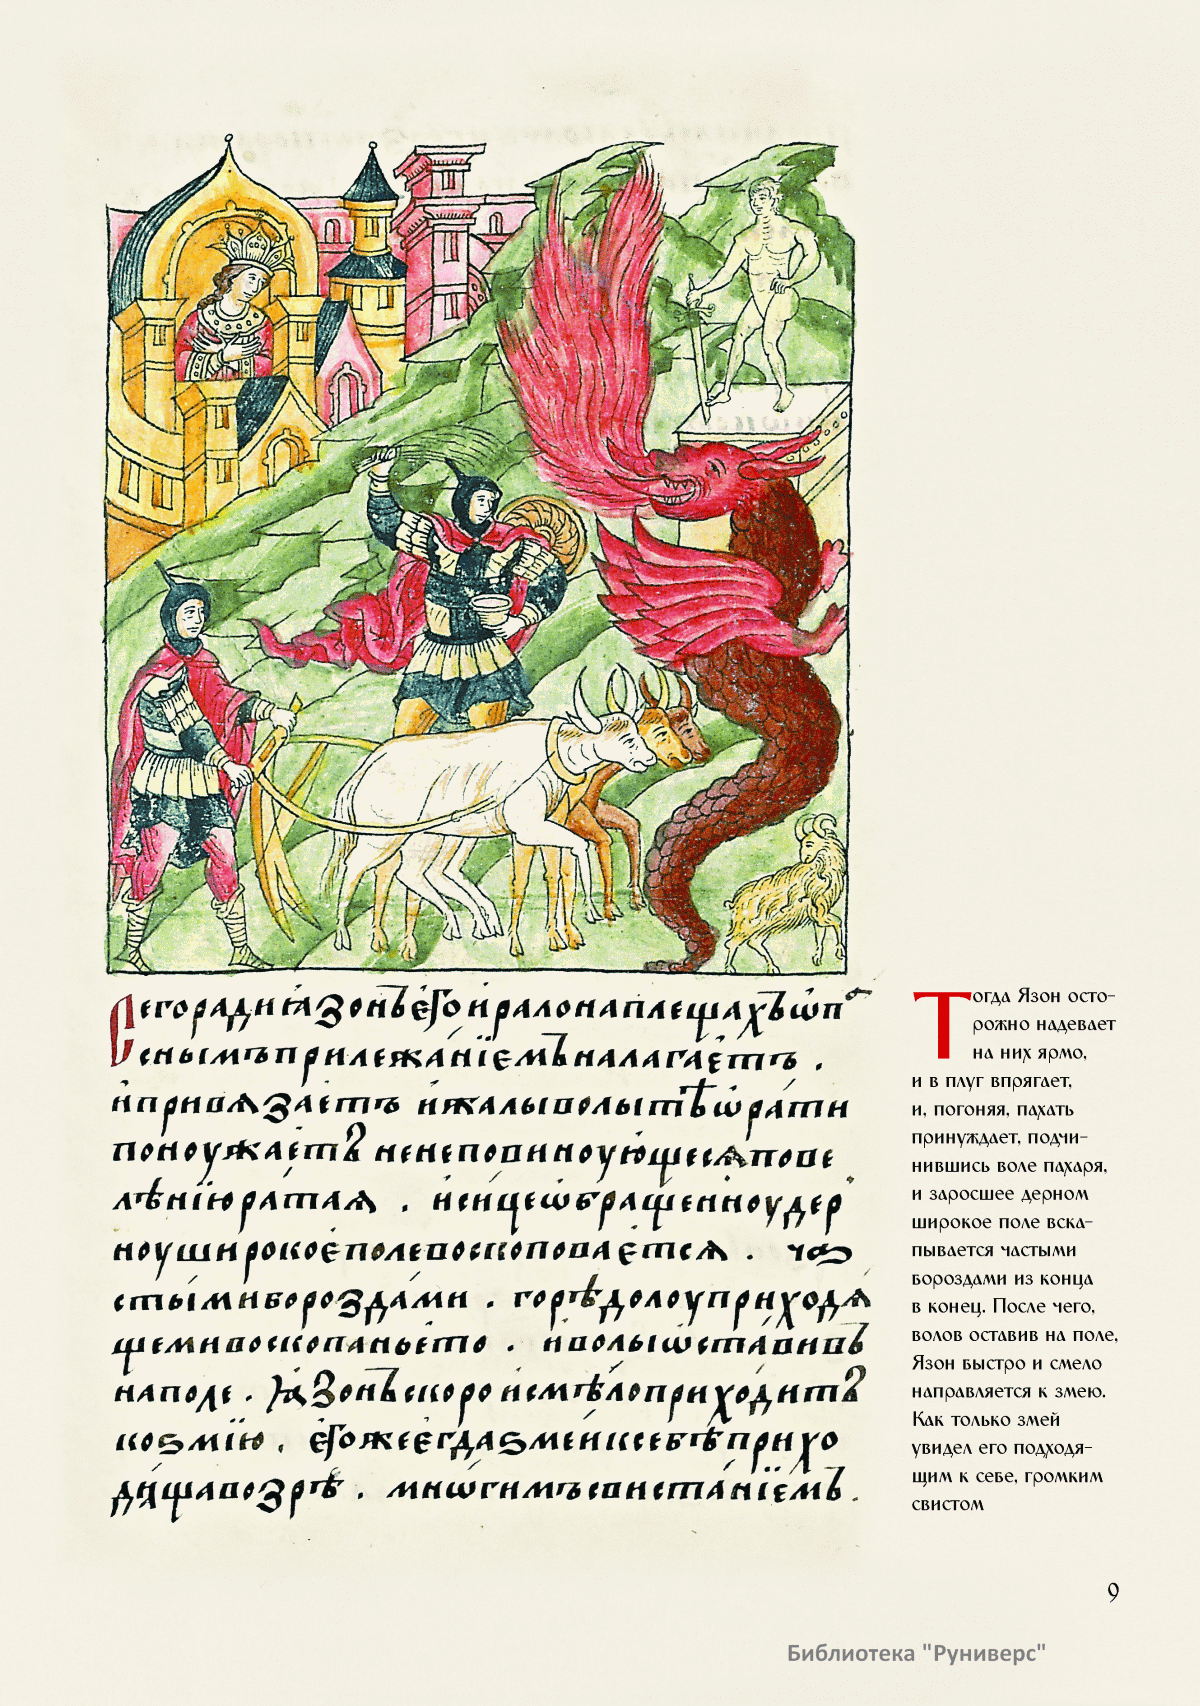 Сего ради ꙗзонъ єго и рало на плещахъ ѡп
сныⷨмъ прилежанїємъ налагаєтъ .
и привѧзаєтъ и жалы волы тѣ ѡрати
поноужаєтъ и не неповиноующесѧ пове
лѣнїю ратаѧ . и еи це ѡбращенноу дер
ноу широкоє поле воскоповаєтсѧ . чѧ
стыми бороздами . горѣ долоу приходѧ
щеми воскопаньєто . и волы ѡставивъ
на поле . ꙗзонъ скоро и смѣло приходитъ
ко ѕмїю . єго же єгда ѕмеи к себѣ прихо
дѧща возрѣ . мнѡгимъ свистанїємъ .
Тогда Язон осто-
рожно надевает
на них ярмо,
и в плуг впрягает,
и, погоняя, пахать
принуждает, подчи-
нившись воле пахаря,
и заросшее дерном
широкое поле вска-
пывается частыми
бороздами из конца
в конец. После чего,
волов оставив на поле,
Язон быстро и смело
направляется к змею.
Как только змей
увидел его подходя-
щим к себе, громким
свистом
9
Библиотека "Руниверс"